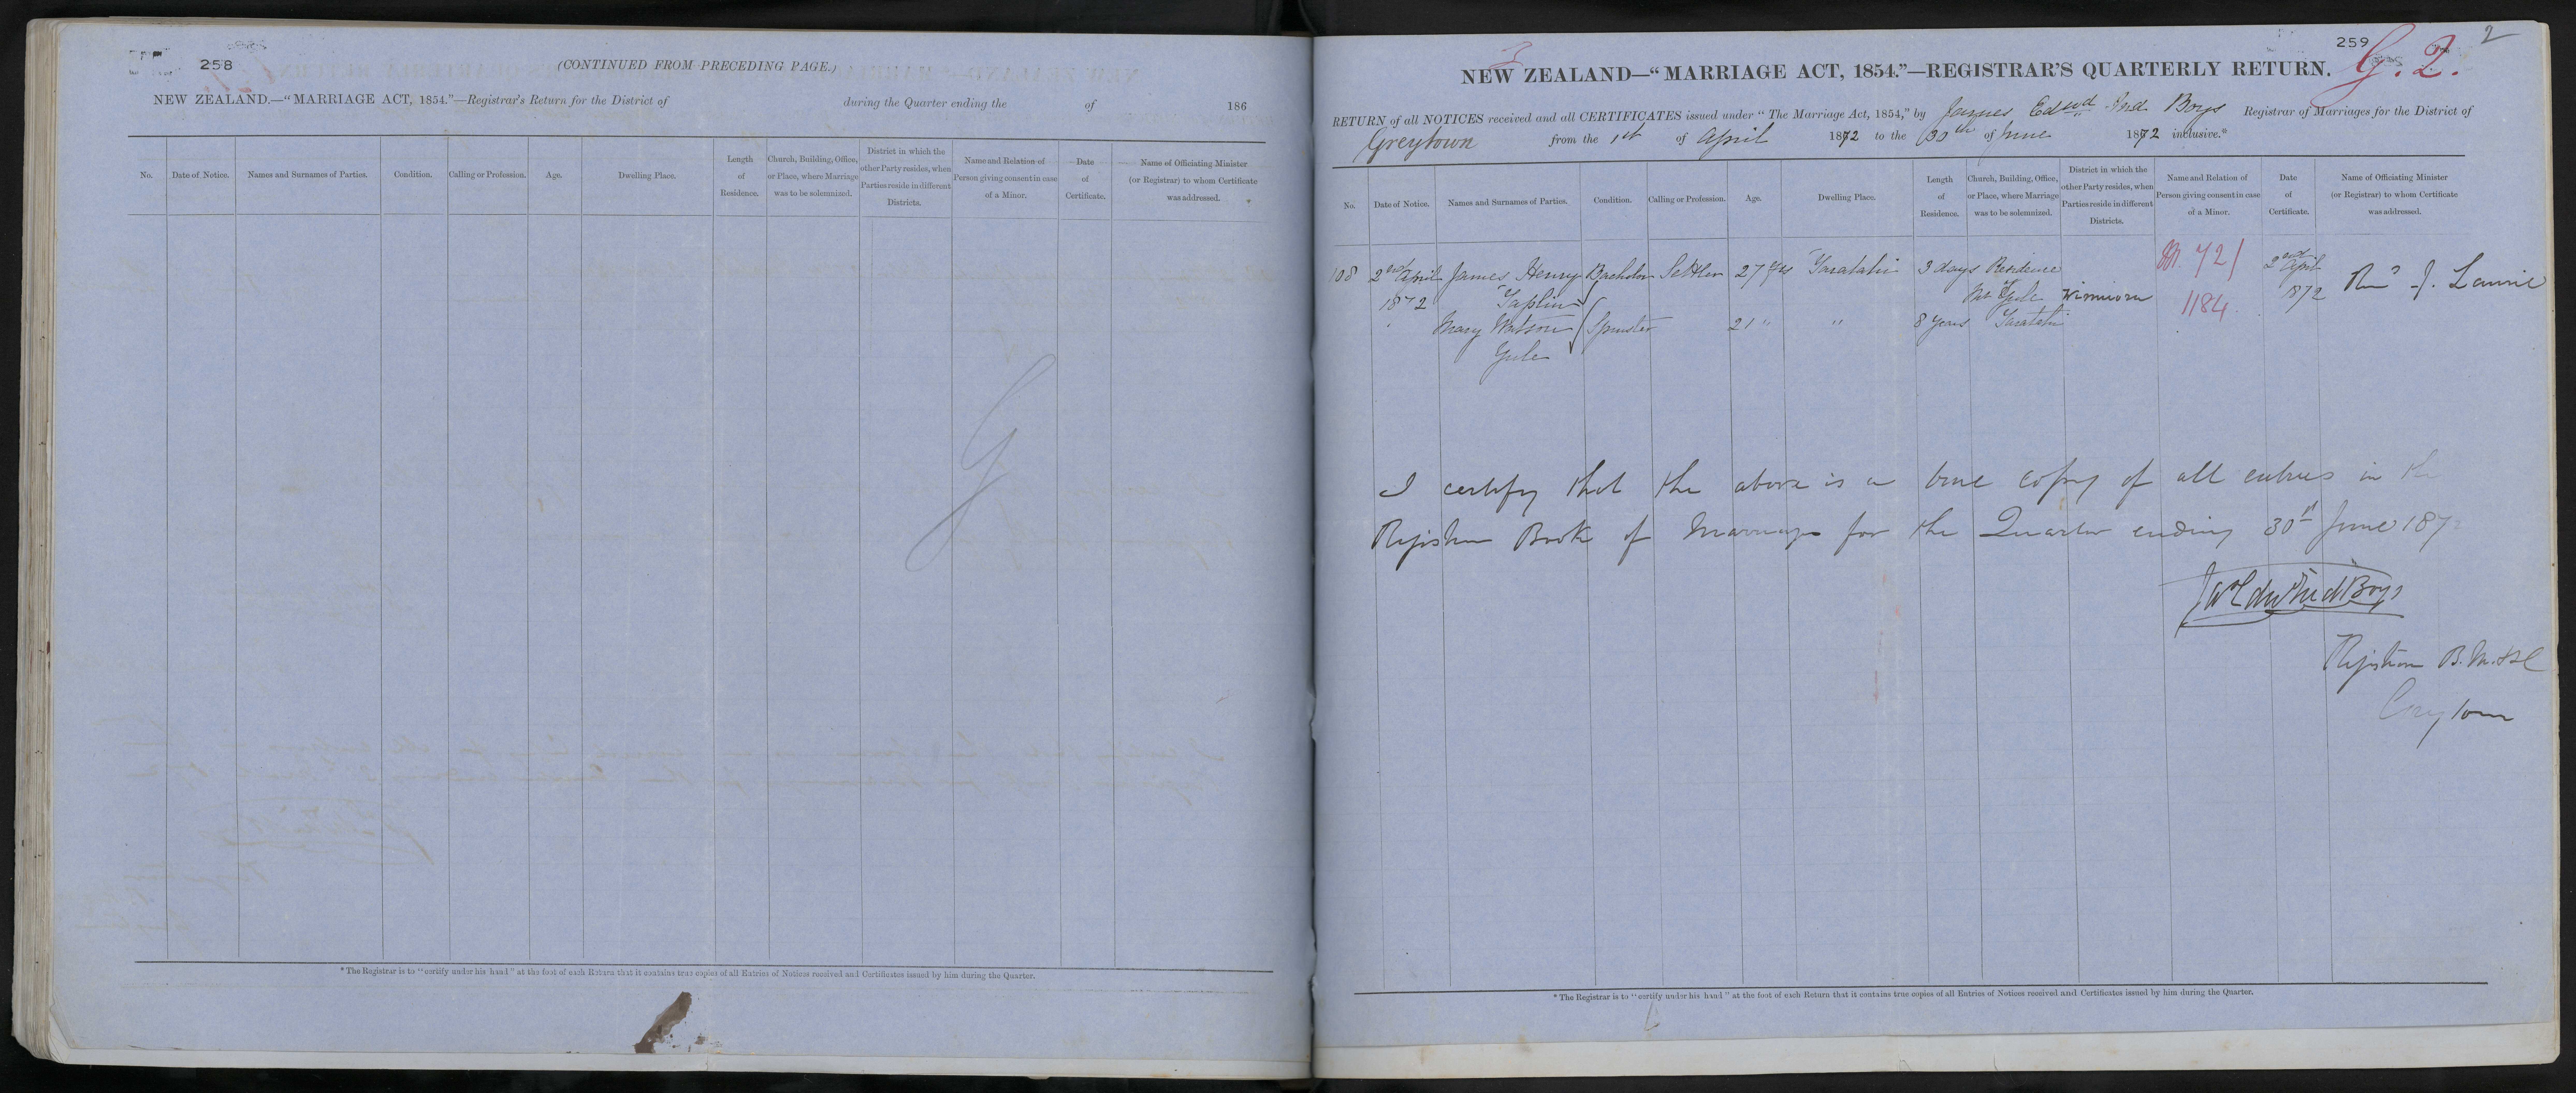 258
(CONTINUED FROM PRECEDING PAGE.)
NEW ZEALAND.—“MARRIAGE ACT, 1854.”—Registrar's Return for the District of during the Quarter ending the of 186
No. Date of Notice. Names and Surnames of Parties. Condition. Calling or Profession. Age. Dwelling Place. Length of Residence. Church, Building, Office, or Place, where Marriage was to be solemnized. District in which the other Party resides, when Parties reside in different Districts. Name and Relation of Person giving consent in case of a Minor. Date of Certificate. Name of Officiating Minister (or Registrar) to whom Certificate was addressed.
* The Registrar is to “certify under his hand” at the foot of each Return that it contains true copies of all Entries of Notices received and Certificates issued by him during the Quarter.
259
2
G. 2.
3
NEW ZEALAND—“MARRIAGE ACT, 1854.”—REGISTRAR'S QUARTERLY RETURN.
RETURN of all NOTICES received and all CERTIFICATES issued under “The Marriage Act, 1854,” by James Edwd Ind Boys Registrar of Marriages for the District of
Greytown from the 1st of April 1872 to the 30th of June 1872 inclusive.*
No. Date of Notice. Names and Surnames of Parties. Condition. Calling or Profession. Age. Dwelling Place. Length of Residence. Church, Building, Office, or Place, where Marriage was to be solemnized. District in which the other Party resides, when Parties reside in different Districts. Name and Relation of Person giving consent in case of a Minor. Date of Certificate. Name of Officiating Minister (or Registrar) to whom Certificate was addressed.
108 2nd April James Henry Bachelor Settler 27 yrs Taratahi 3 days Residence 72/ 2nd April Revd J. Laurie
1872 Taplin Mr Yule 1184 1872
Mary Watson Spinster 21 " " 8 years Taratahi
Yule
I certify that the above is a true copy of all entries in the
Register Book of Marriages for the Quarter ending 30th June 187
Ind Boys
Registrar B. M. &c
Greytown
* The Registrar is to “certify under his hand” at the foot of each Return that it contains true copies of all Entries of Notices received and Certificates issued by him during the Quarter.